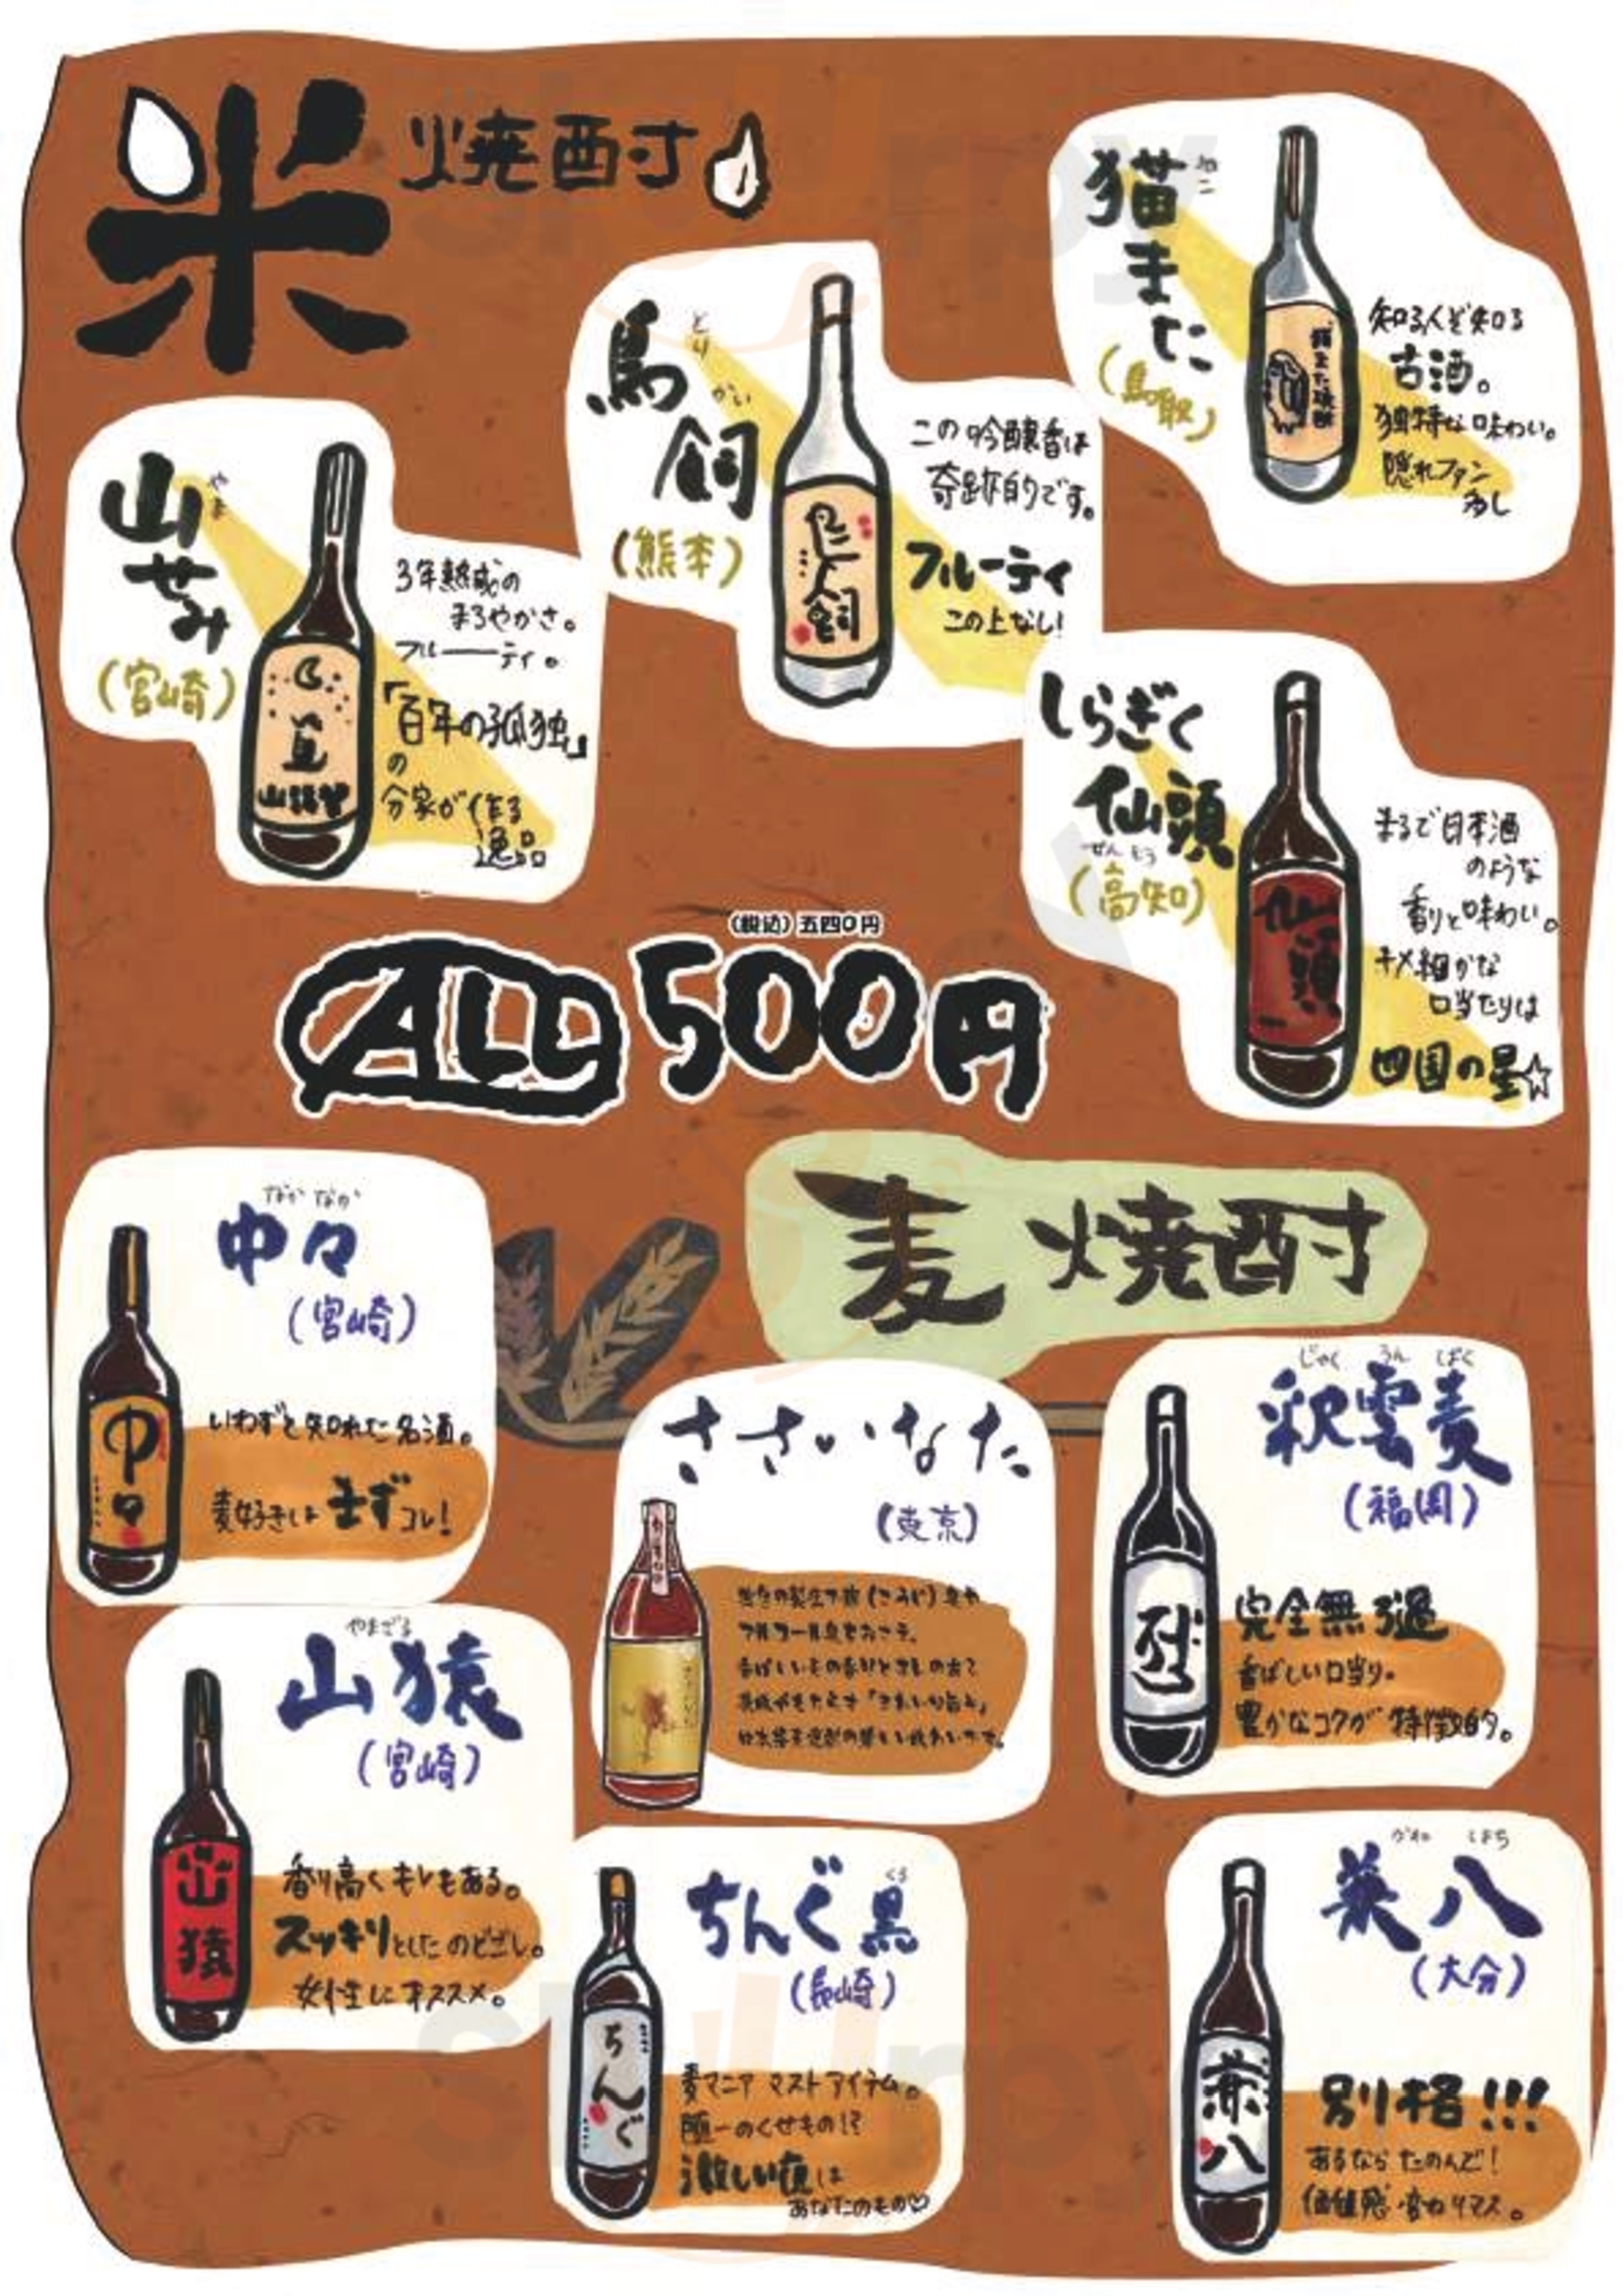 米焼酎
猫また
ねこ
(鳥取)
知る人ぞ知る
古酒。
独特な味わい。
隠れファン
多し
鳥飼
とり かい
(熊本)
この吟醸香は
奇跡的です。
フルーティ
この上なし!
山せみ
やま
(宮崎)
3年熟成の
まろやかさ。
フルーーティ。
「百年の孤独」
の
分家が作る
逸品
しらぎく
仙頭
せんとう
(高知)
まるで日本酒
のような
香りと味わい。
キメ細かな
口当たりは
四国の星☆
仙頭
(税込)五四〇円
ALL500円
麦焼酎
なかなか
中々
(宮崎)
いわずと知れた名酒。
麦好きはまずコレ!
中々
ささいなた
(東京)
アルコール臭をおさえ、
じゃく うん ばく
釈雲麦
(福岡)
完全無ろ過
香ばしい口当り。
豊かなコクが特徴的。
やまざる
山猿
(宮崎)
香り高くキレもある。
スッキリとしたのどごし。
女性にオススメ。
山猿
ちんぐ黒
くろ
(長崎)
麦マニア マストアイテム。
随一のくせもの!?
激しい夜は
あなたのもの♡
ちんぐ
かね はち
兼八
(大分)
別格!!!
あるなら たのんで!
価値感変わりマス。
兼八